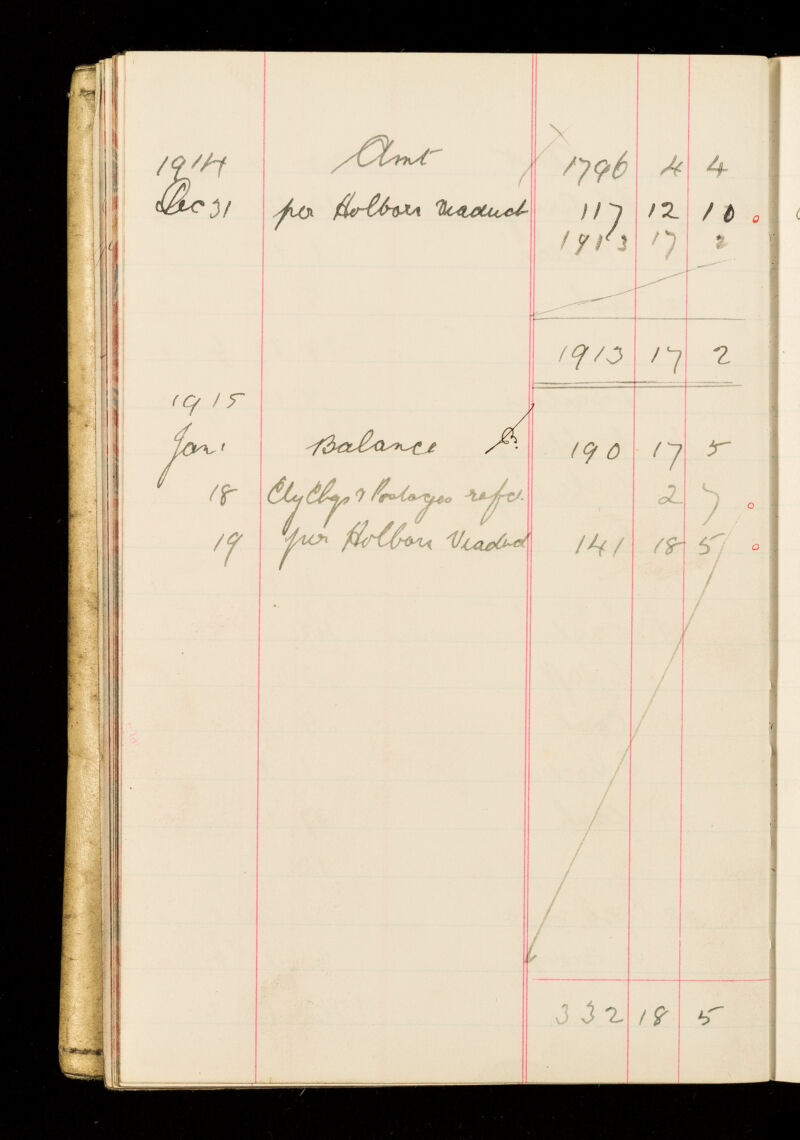 1914 Amt 1796 4 4
Dec 31 per Holborn Viaduct 117 12 10
1913 17 2
1913 17 2
1915
Jan 1 Balance B. 190 17 5
18 Cly Chgs & Postages refd. 2 7
19 per Holborn Viaduct 141 18 5
332 18 5